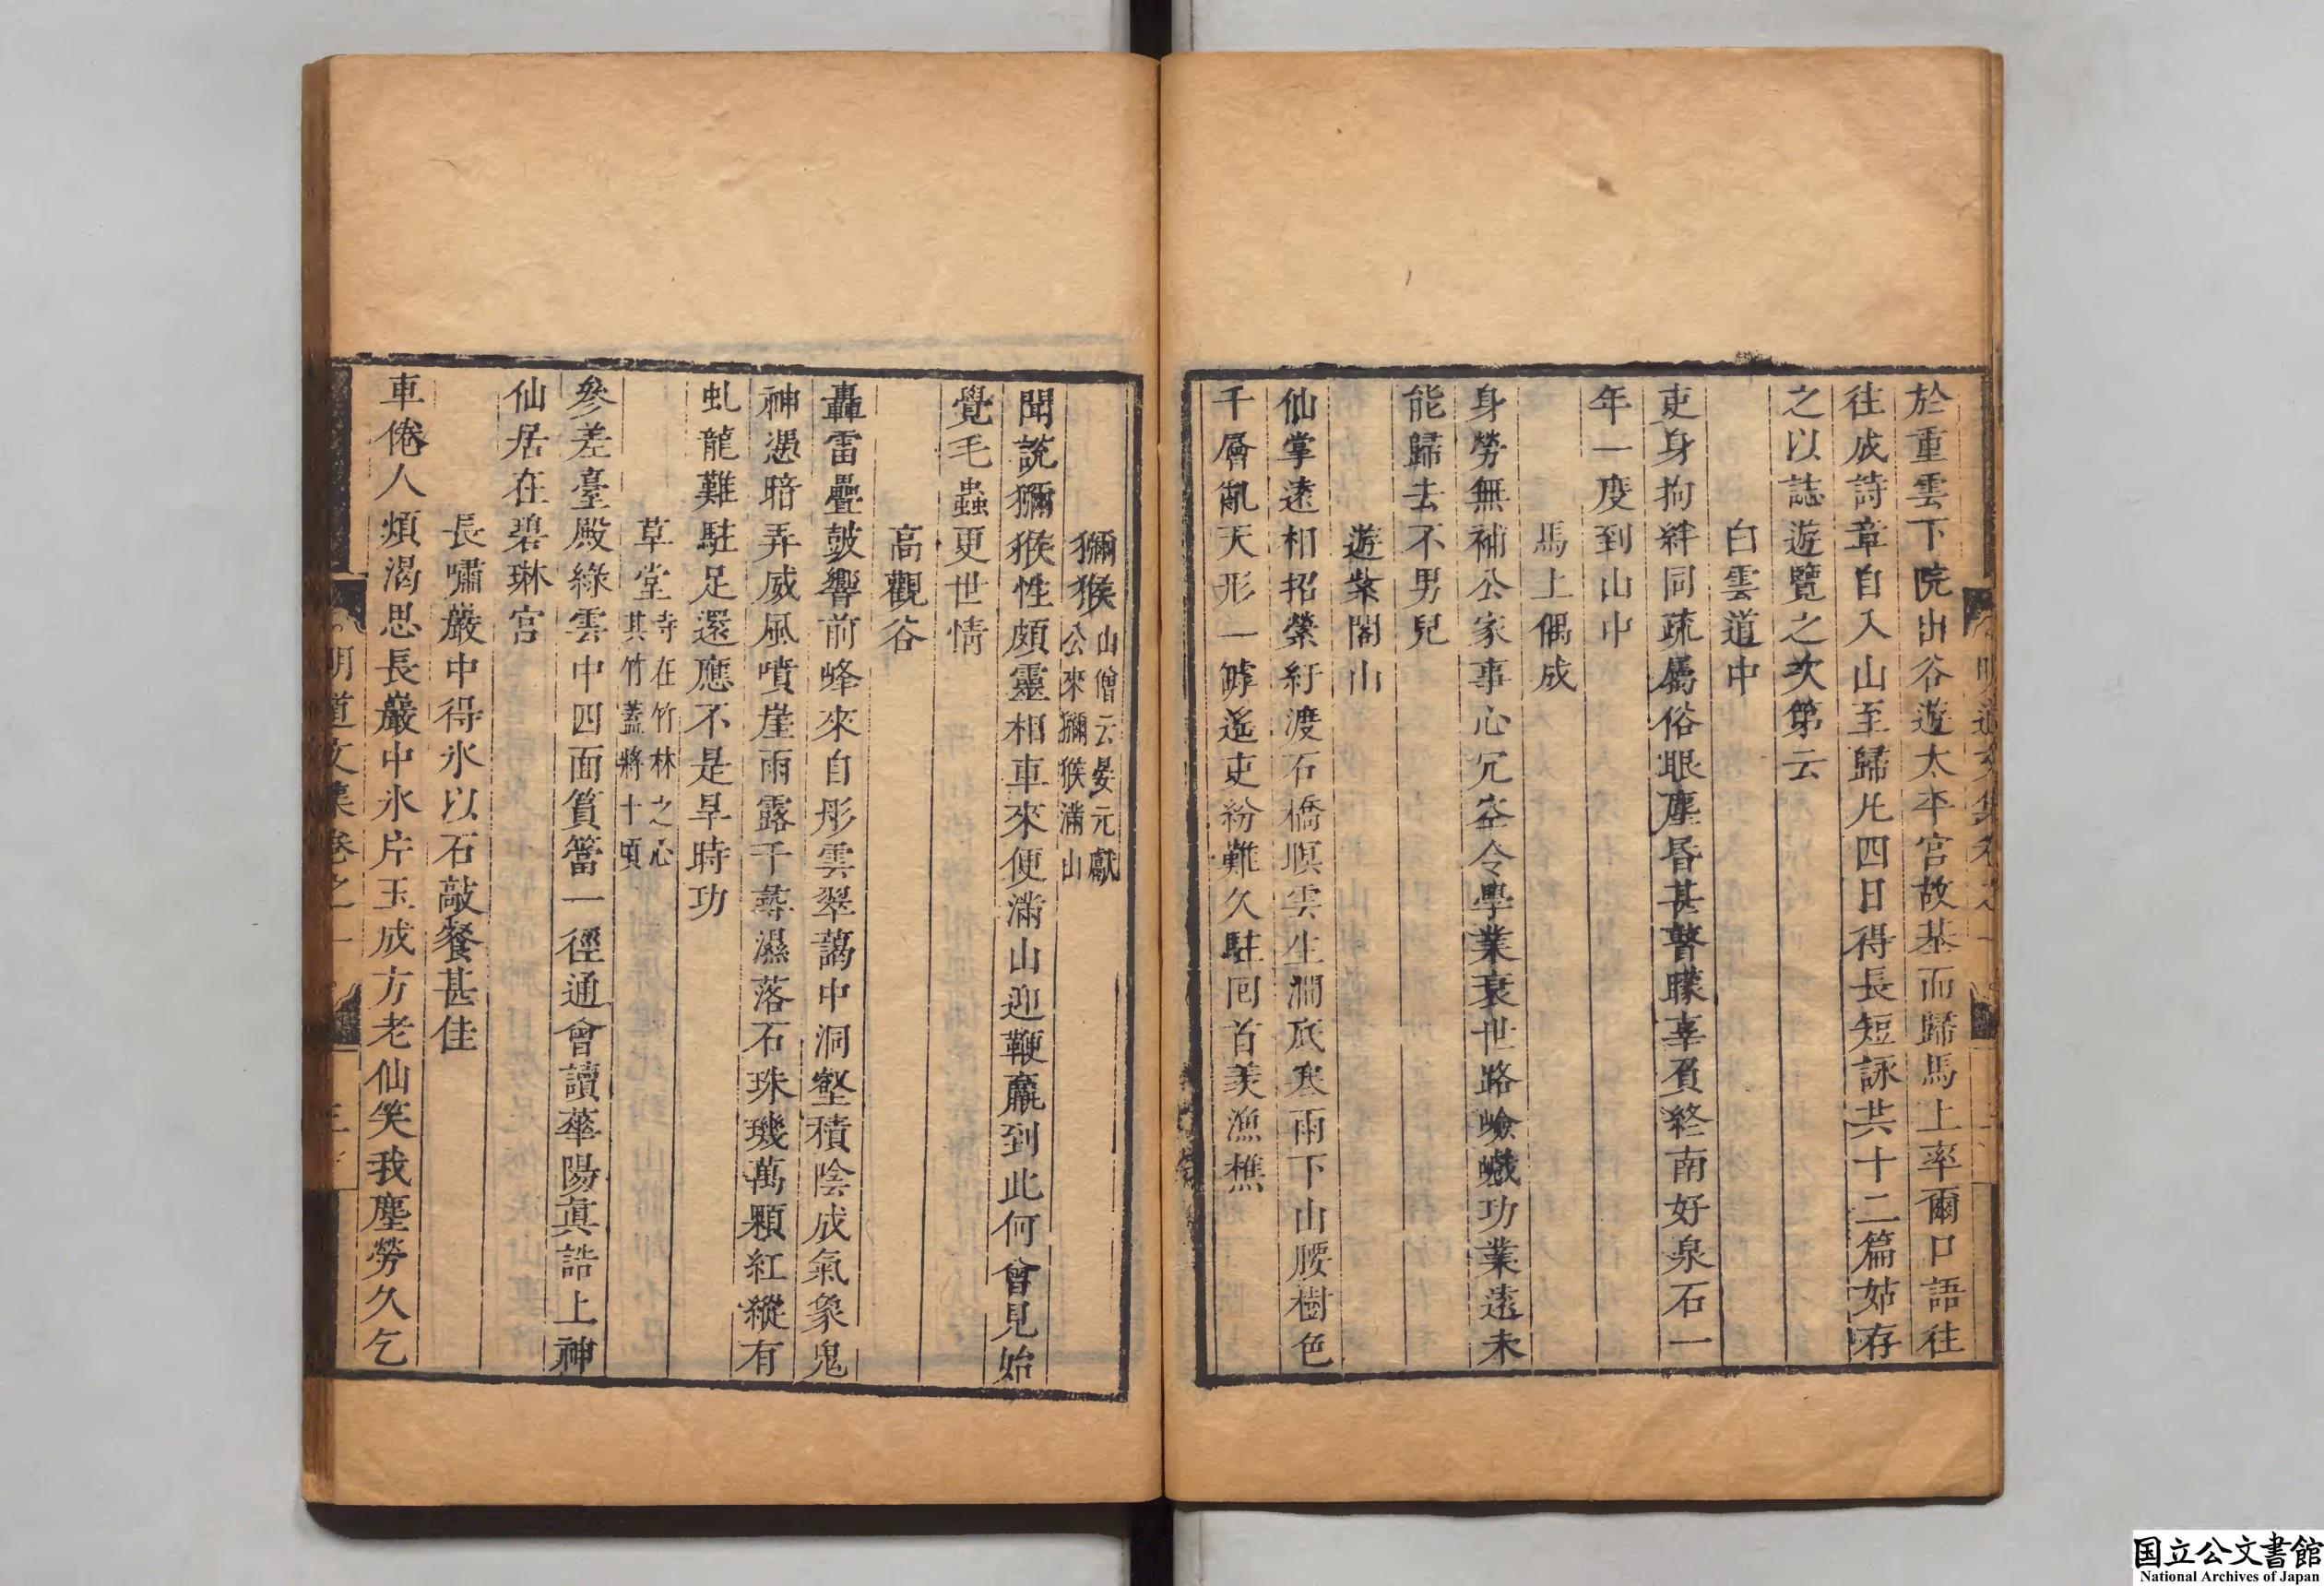 於重雲下院出谷遊太平宮故基而歸馬上率爾口語往
往成詩章自入山至歸凢四日得長短詠共十二篇姑存
之以誌遊覽之次第云
白雲道中
吏身拘絆同疏屬俗眼塵昏甚瞽矇辜負終南好泉石一
年一度到山中
馬上偶成
身勞無補公家事心冗空令學業衰世路嶮巇功業遠未
能歸去不男兒
遊紫閣山
仙掌遠相招縈紆渡石橋暝雲生澗底寒雨下山腰樹色
千層亂天形一罅遙吏紛難久駐回首羨漁樵
獼猴山僧云晏元獻公來獼猴滿山
聞説獼猴性頗靈相車來便滿山迎鞭羸到此何曾見始
覺毛蟲更世情
高觀谷
轟雷疊鼓響前峰來自彤雲翠藹中洞壑積陰成氣象鬼
神憑暗弄威風噴崖雨露千尋濕落石珠璣萬顆紅縱有
虬龍難駐足還應不是旱時功
草堂寺在竹林之心其竹蓋將十頃
參差臺殿綠雲中四面篔簹一徑通曾讀華陽眞誥上神
仙居在碧琳宮
長嘯巖中得氷以石敲餐甚佳
車倦人煩渴思長巖中氷片玉成方老仙笑我塵勞久乞
明道文集卷之一
国立公文書館
National Archives of Japan